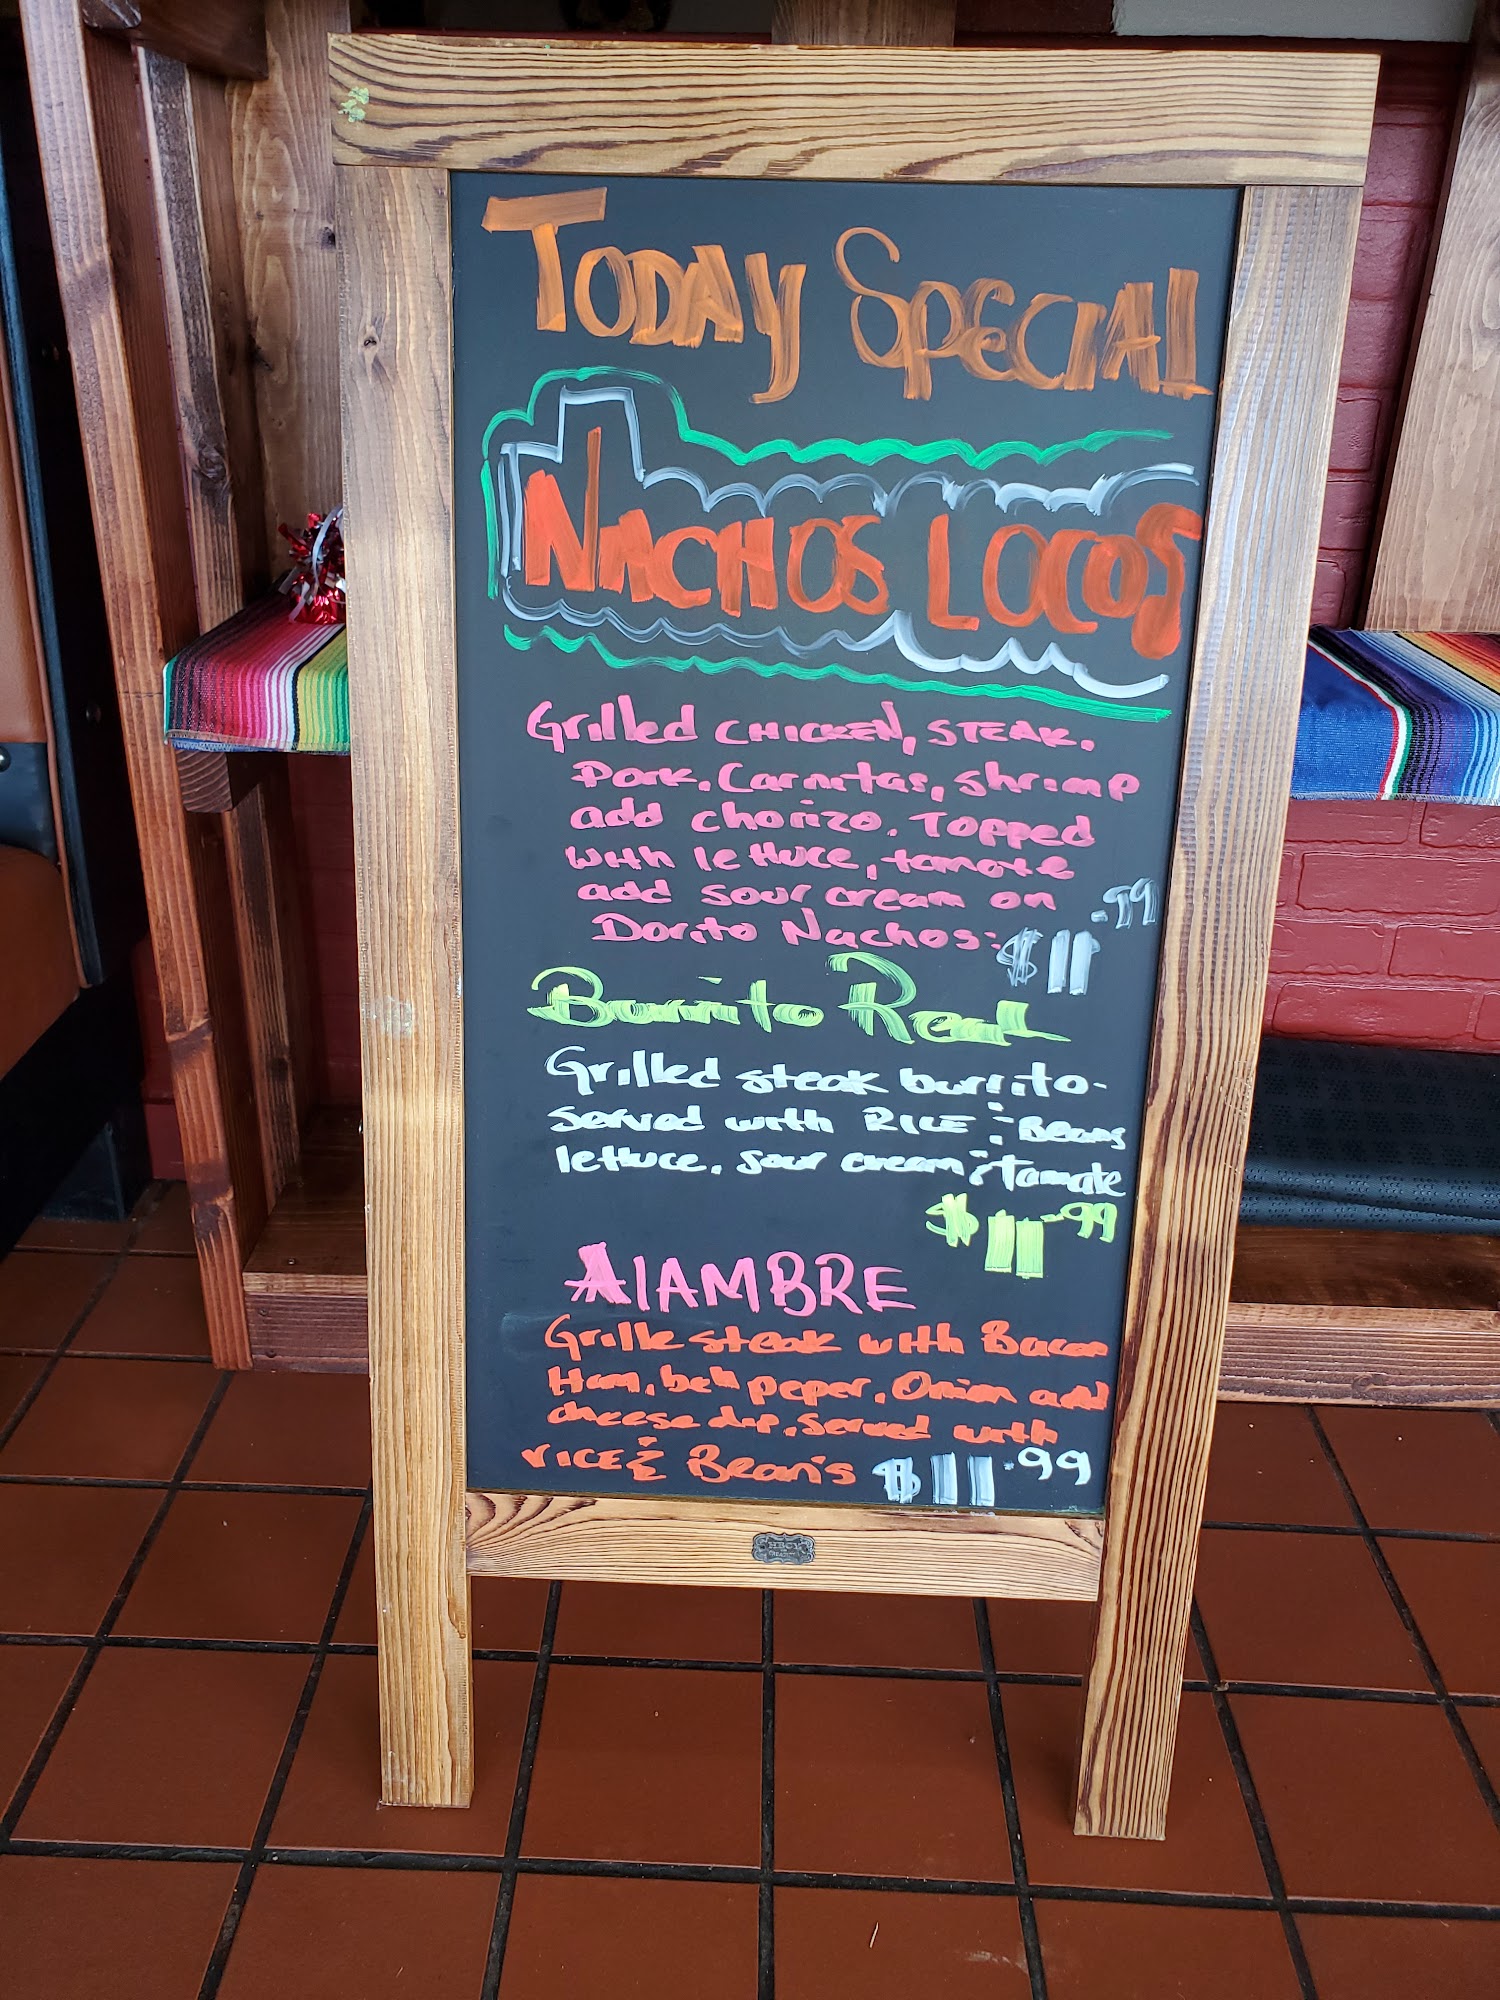 TODAY SPECIAL
NACHOS LOCOS
Grilled CHICKEN, STEAK.
Pork. Carnitas, shrimp
add chorizo. Topped
with lettuce, tomate
add sour cream on
Dorito Nachos: $11.99
Burrito Real
Grilled steak burrito.
served with RICE & Beans
lettuce, sour cream & tomate
$11.99
AlAMBRE
Grille steak with Bacon
Ham, bell peper, Onion add
cheese dip, served with
RICE & Bean's $11.99